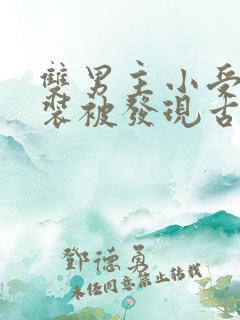 雙男主小受
裝被發現古
鄧德勇
未經同意禁止轉載